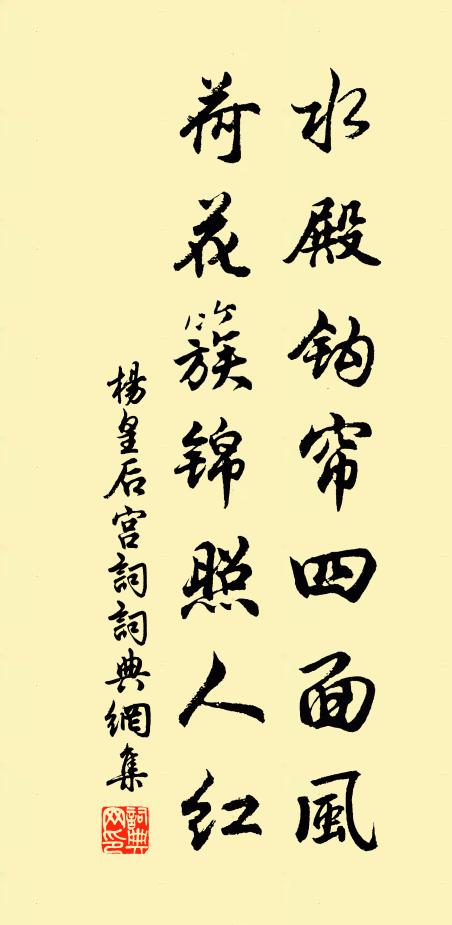 水殿鈎帘四面風
荷花簇錦照人红
楊皇后宫詞詞典網集
詞典
网印